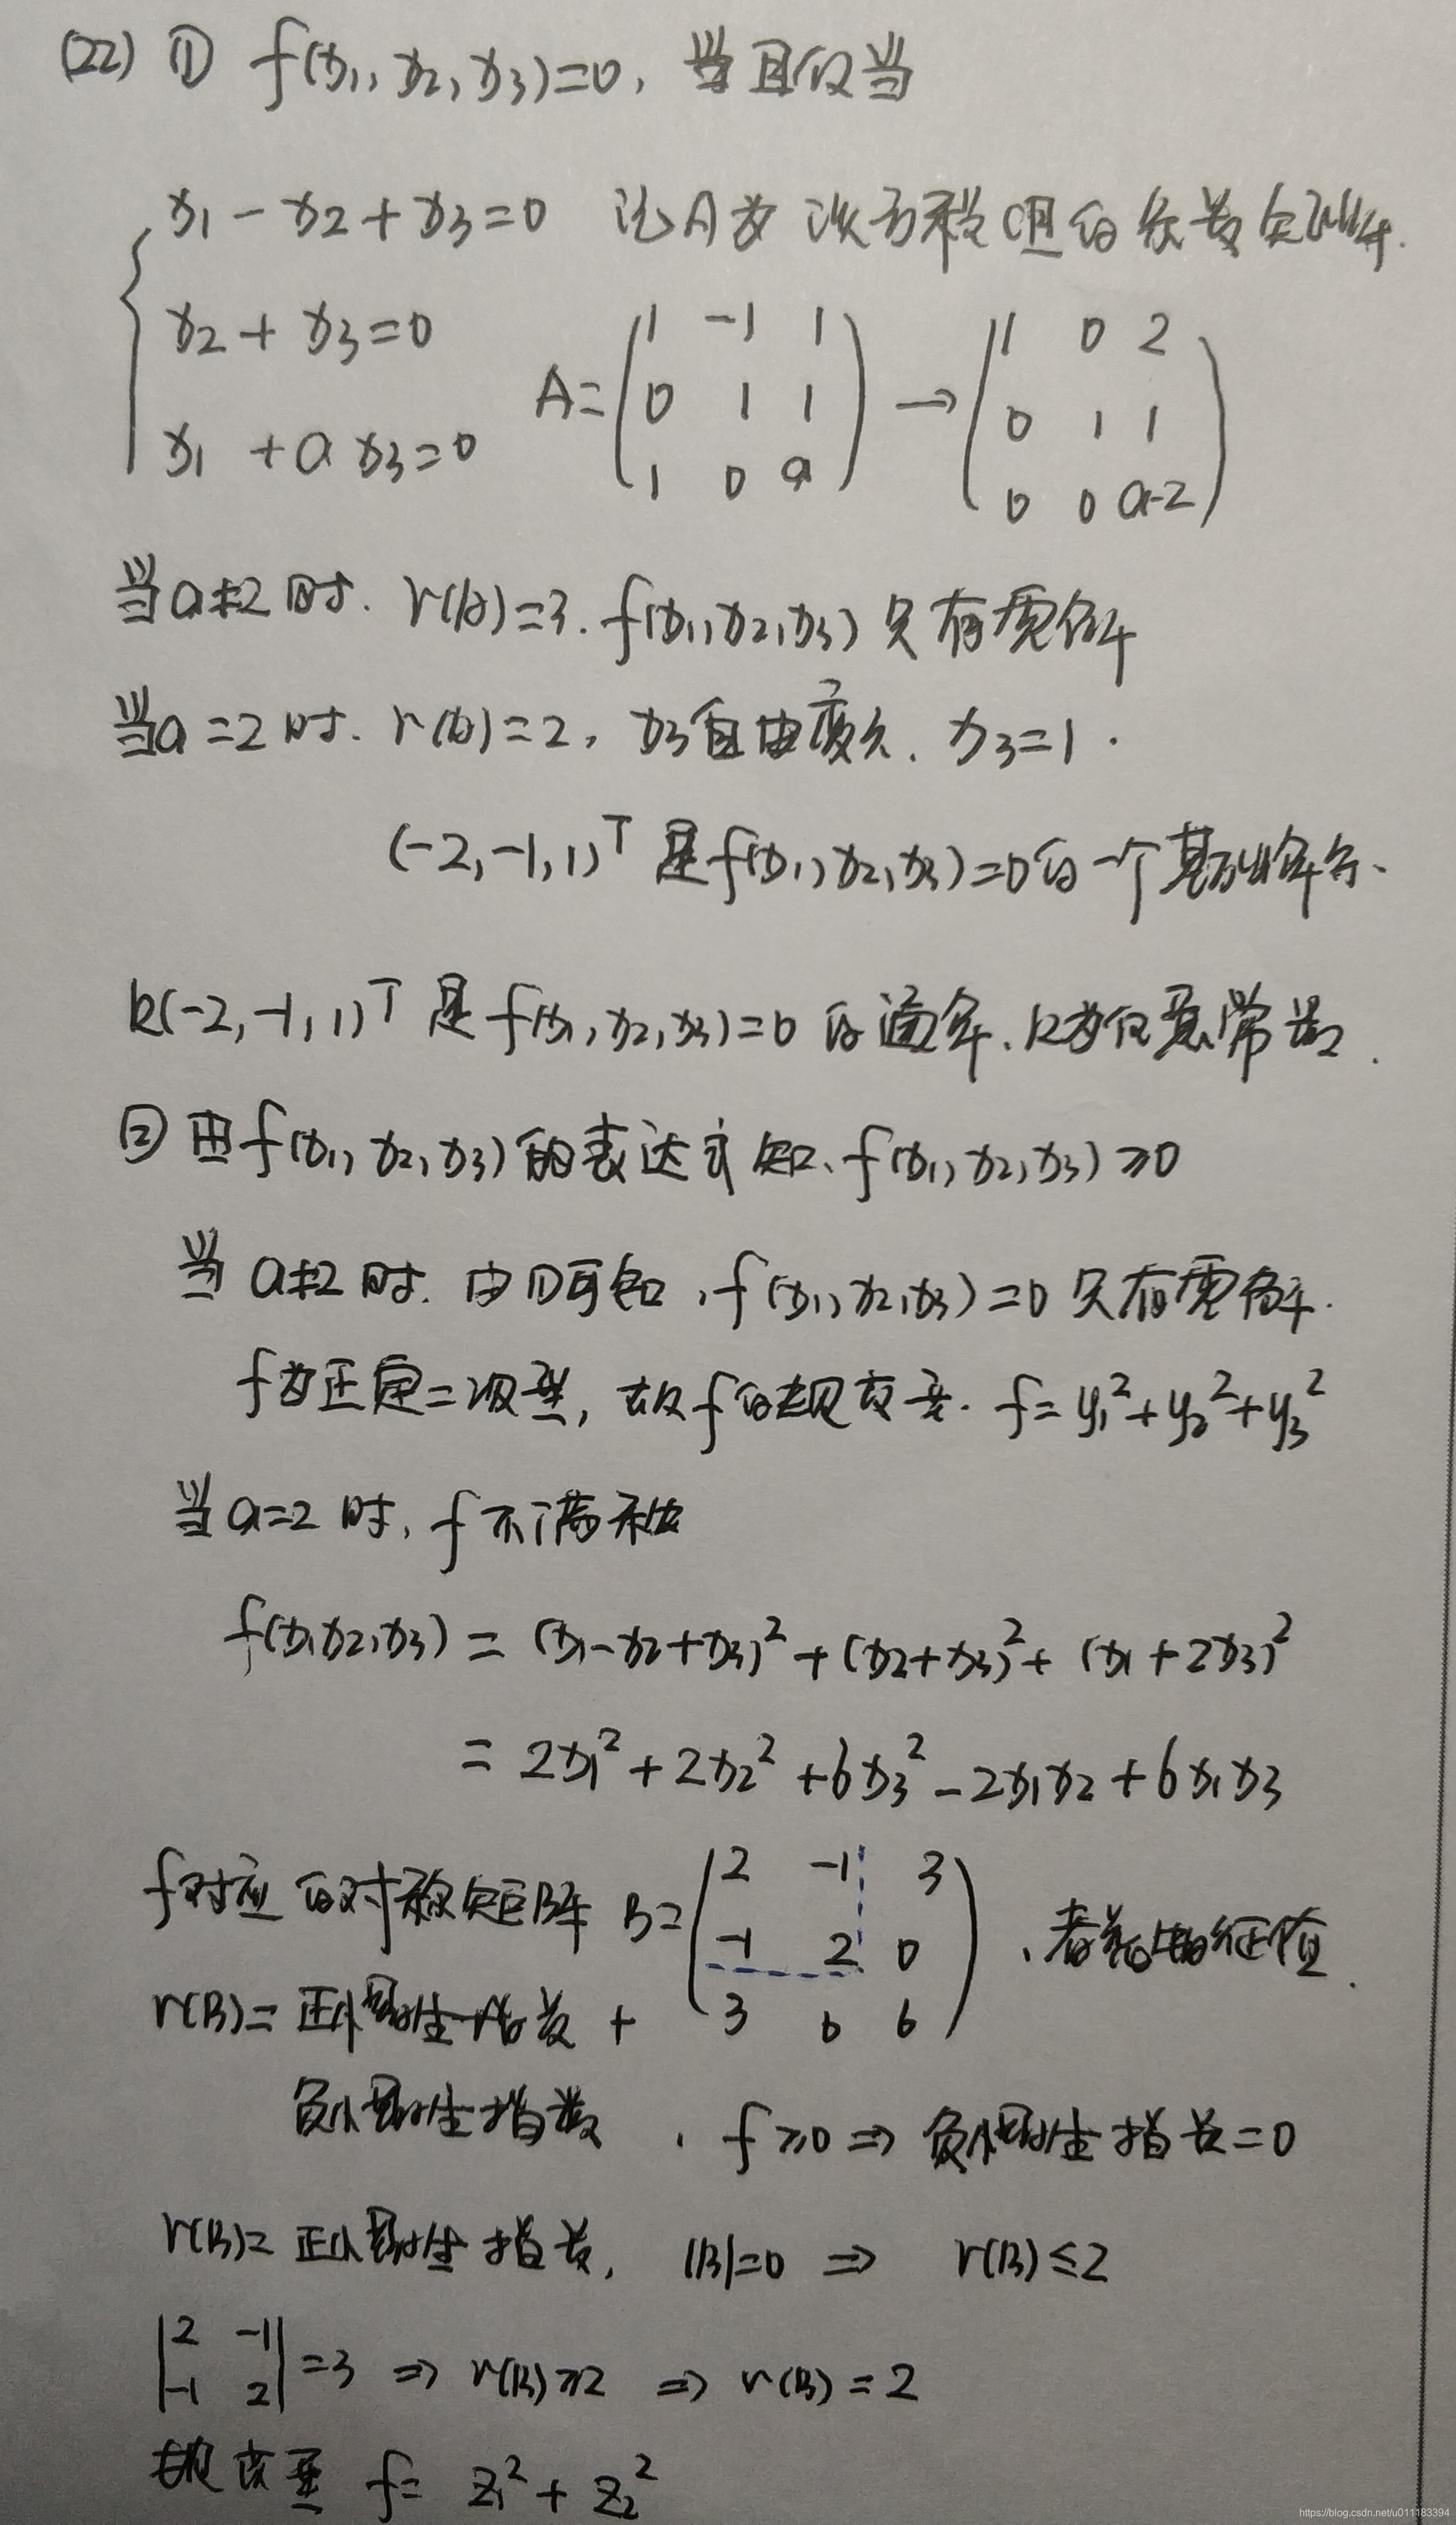 (22) ① f(x1, x2, x3)=0, 当且仅当
x1 - x2 + x3 = 0 记A为次方程组的系数矩阵.
x2 + x3 = 0
x1 + a x3 = 0
A = (1 -1 1; 0 1 1; 1 0 a) → (1 0 2; 0 1 1; 0 0 a-2)
当a≠2时. r(A)=3. f(x1,x2,x3)只有零解
当a=2时. r(A)=2, x3自由变久. x3=1.
(-2,-1,1)ᵀ 是f(x1,x2,x3)=0的一个基础解系、
k(-2,-1,1)ᵀ 是f(x1,x2,x3)=0的通解. k为任意常数.
② 由f(x1,x2,x3)的表达式知、f(x1,x2,x3)≥0
当a≠2时. 由①可知, f(x1,x2,x3)=0只有零解.
f为正定二次型, 故f的规范型. f=y1²+y2²+y3²
当a=2时, f不满秩
f(x1x2,x3) = (x1-x2+x3)²+(x2+x3)²+(x1+2x3)²
= 2x1²+2x2²+6x3²-2x1x2+6x1x3
f对应的对称矩阵 B=(2 -1 3; -1 2 0; 3 0 6)、特征值.
r(B)= 正惯性指数 +
负惯性指数, f≥0 ⇒ 负惯性指数=0
r(B)= 正惯性指数, |B|=0 ⇒ r(B)≤2
|2 -1; -1 2|=3 ⇒ r(B)≥2 ⇒ r(B)=2
故 型 f= z1²+z2²
https://blog.csdn.net/u011183394